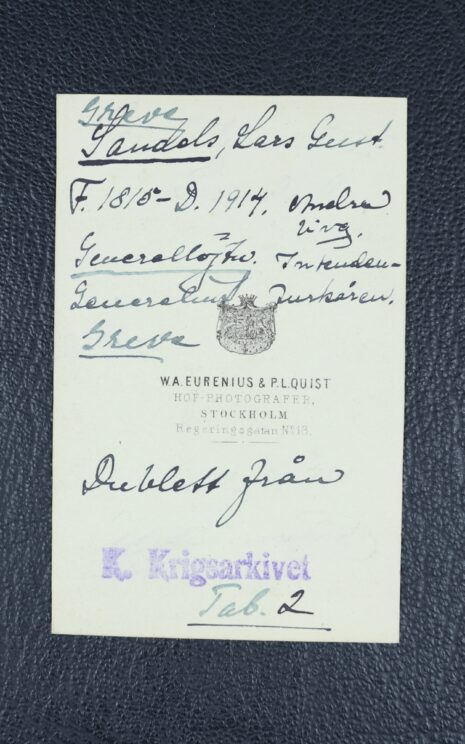 Greve
Sandels, Lars Gust.
F. 1815 - D. 1914. Andra
Livg.
Generallöjtn. Intenden-
Generalint turkåren.
Greve
W.A. EURENIUS & P.L. QUIST
HOF-PHOTOGRAFER,
STOCKHOLM
Regeringsgatan No 18.
Dublett från
K. Krigsarkivet
Tab. 2